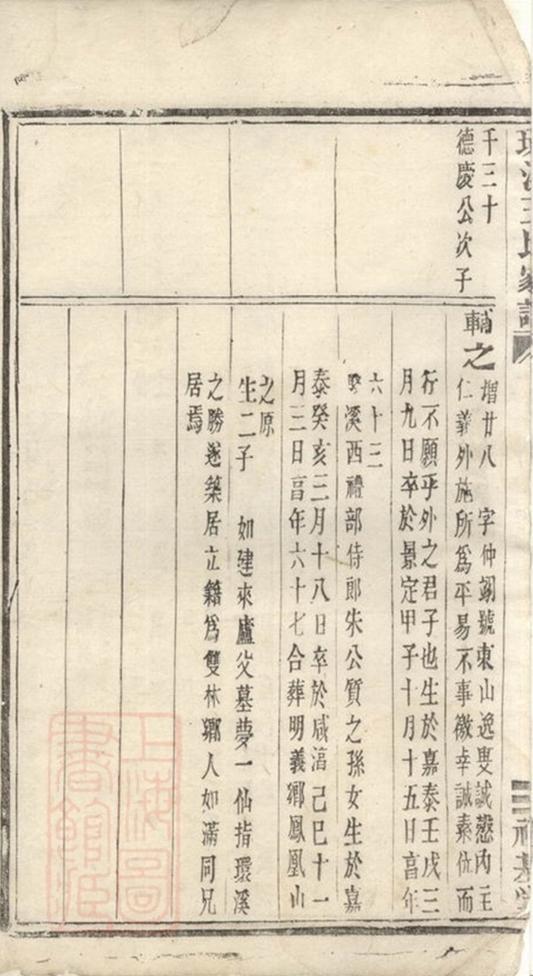 環溪王氏家譜
千三十
德慶公次子
輔之
增廿八 字仲翊號東山逸叟誠慤內主
仁義外施所為平易不事徼幸誠素位而
行不願乎外之君子也生於嘉泰壬戌三
月九日卒於景定甲子十月十五日亯年
六十三
娶溪西禮部侍郎朱公質之孫女生於嘉
泰癸亥三月十八日卒於咸湻己巳十一
月三日亯年六十七合葬明義鄉鳳凰山
之原
生二子 如建來廬父墓夢一仙指環溪
之勝遂築居立籍為雙林鄉人如滿同兄
居焉
上海圖書館藏